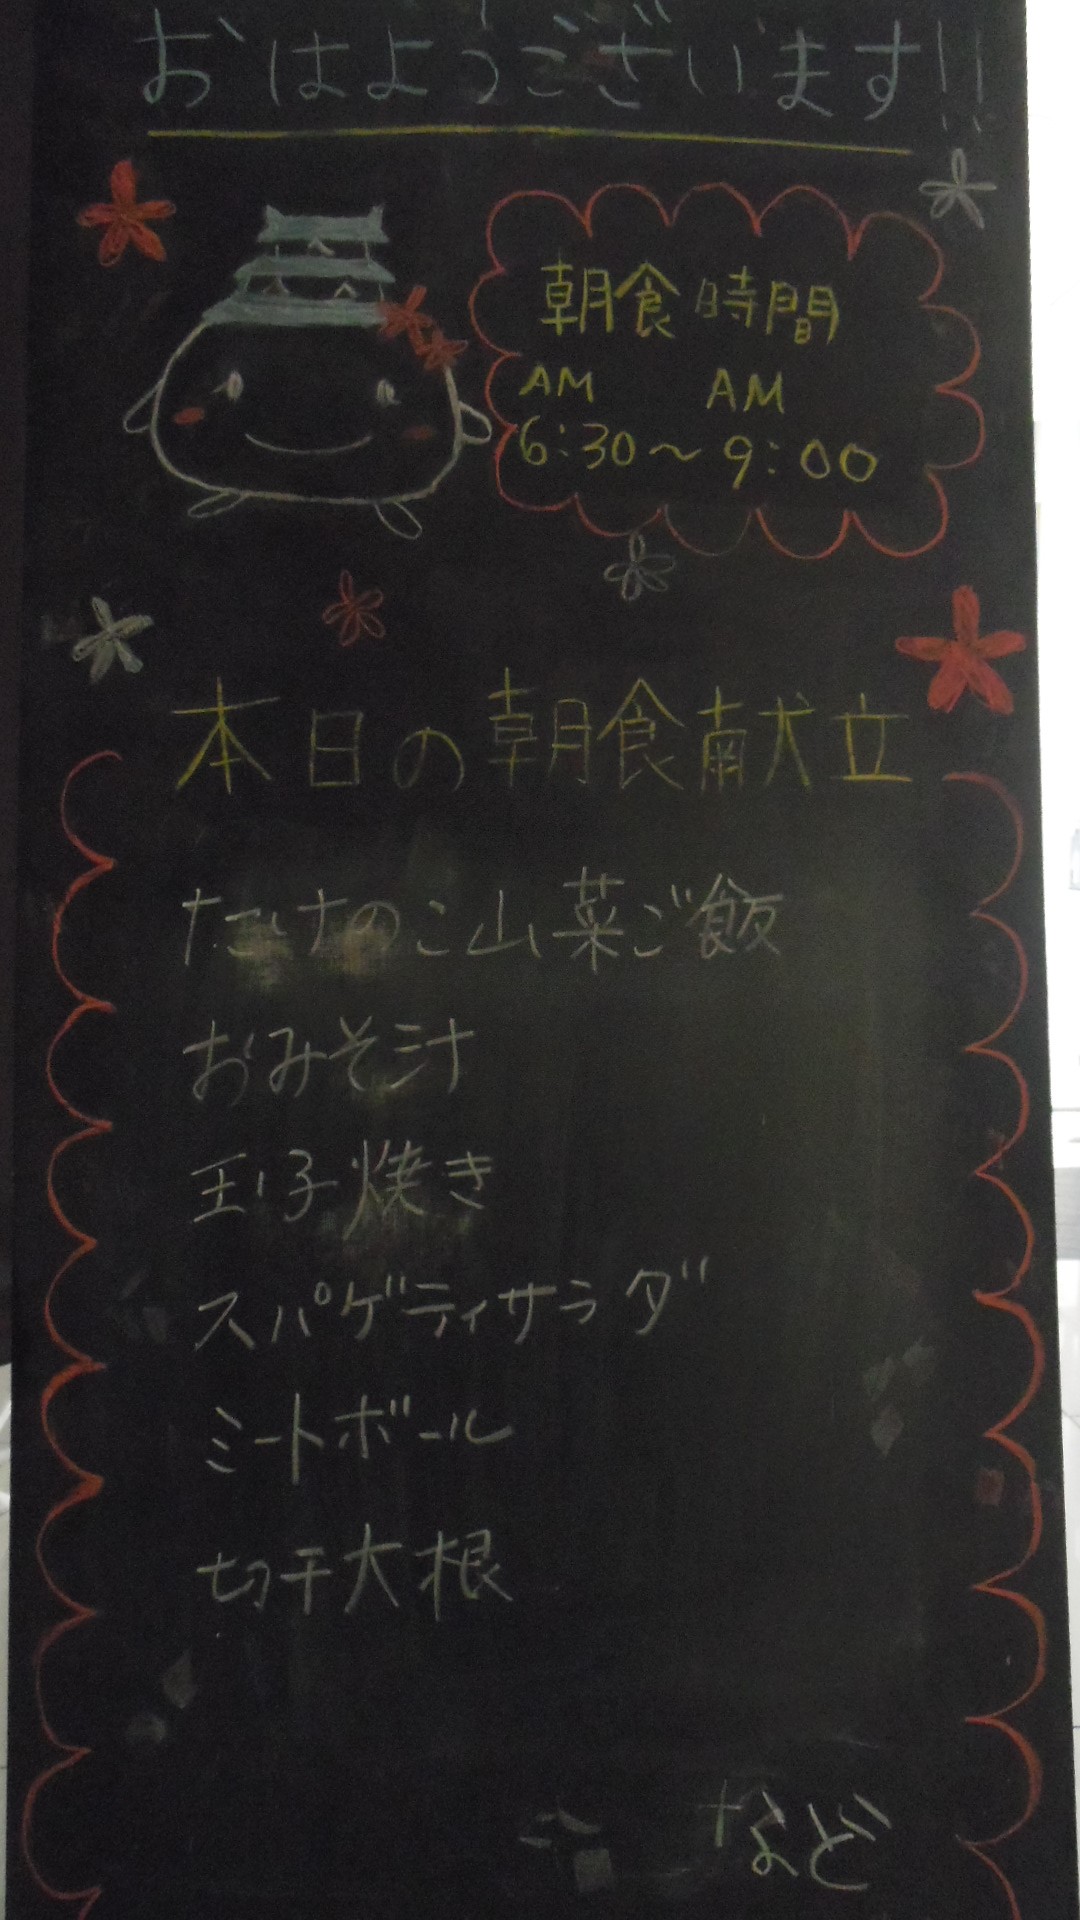 おはようございます!!
朝食時間
AM AM
6:30～9:00
本日の朝食献立
たけのこ山菜ご飯
おみそ汁
玉子焼き
スパゲティサラダ
ミートボール
切干大根
など